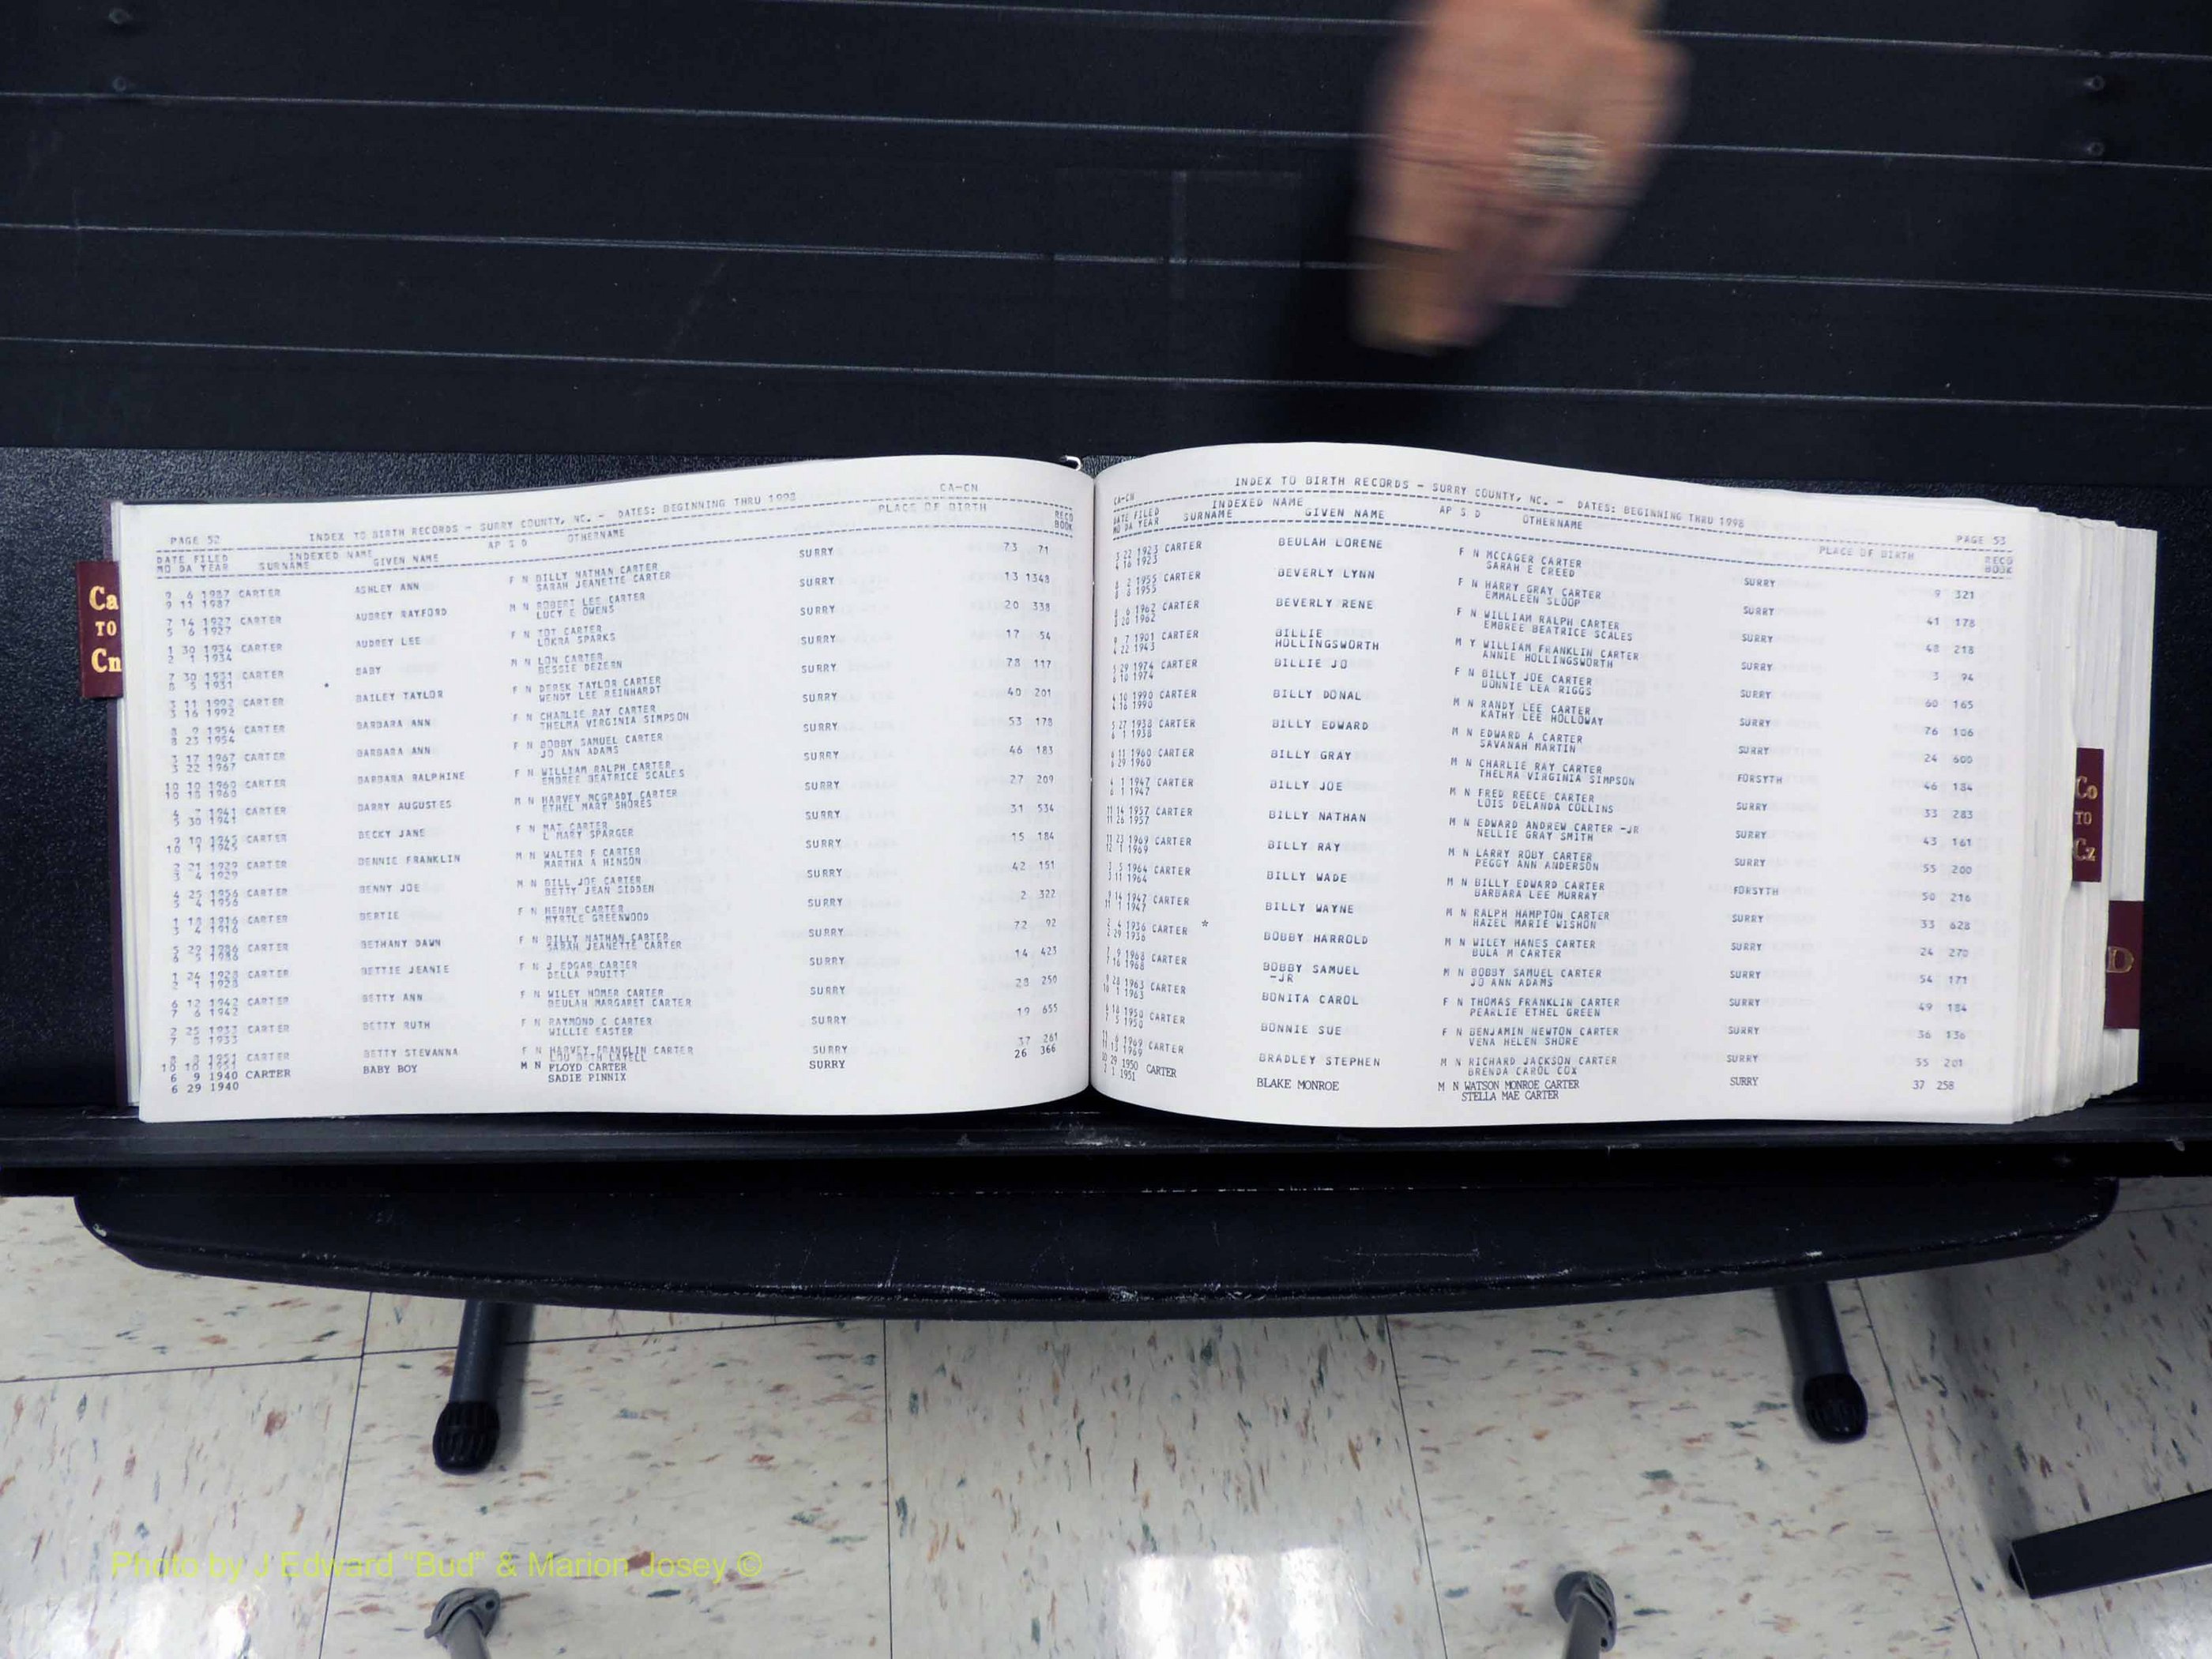 Ca
TO
Cn
PAGE 52 INDEX TO BIRTH RECORDS - SURRY COUNTY, NC. - DATES: BEGINNING THRU 1998 CA-CN
DATE FILED INDEXED NAME AP S D OTHERNAME PLACE OF BIRTH RECO
MO DA YEAR SURNAME GIVEN NAME BOOK
9 6 1987 CARTER ASHLEY ANN F N BILLY NATHAN CARTER SURRY 73 71
9 11 1987 SARAH JEANETTE CARTER
7 14 1927 CARTER AUDREY RAYFORD M N ROBERT LEE CARTER SURRY 13 1348
5 6 1927 LUCY E OWENS
1 30 1934 CARTER AUDREY LEE F N TOT CARTER SURRY 20 338
2 1 1934 SPARKS
7 30 1931 CARTER BABY M N LON CARTER SURRY 17 54
8 5 1931 BESSIE DEZERN
3 11 1992 CARTER BAILEY TAYLOR F N DEREK TAYLOR CARTER SURRY 78 117
3 16 1992 WENDY LEE REINHARDT
8 9 1954 CARTER BARBARA ANN F N CHARLIE RAY CARTER SURRY 40 201
8 23 1954 THELMA VIRGINIA SIMPSON
3 17 1967 CARTER BARBARA ANN F N BOBBY SAMUEL CARTER SURRY 53 178
3 22 1967 JO ANN ADAMS
10 10 1960 CARTER BARBARA RALPHINE F N WILLIAM RALPH CARTER SURRY 46 183
10 18 1960 EMBREE BEATRICE SCALES
4 7 1941 CARTER BARRY AUGUSTES M N HARVEY MCGRADY CARTER SURRY 27 209
5 30 1941 ETHEL MARY SHORES
9 19 1945 CARTER BECKY JANE F N MAT CARTER SURRY 31 534
10 1 1945 L MARY SPARGER
2 21 1929 CARTER BENNIE FRANKLIN M N WALTER F CARTER SURRY 15 184
3 4 1929 MARTHA A HINSON
4 25 1956 CARTER BENNY JOE M N BILL JOE CARTER SURRY 42 151
5 4 1956 BETTY JEAN SIDDEN
1 18 1916 CARTER BERTIE F N HENRY CARTER SURRY 2 322
3 4 1916 MYRTLE GREENWOOD
5 29 1986 CARTER BETHANY DAWN F N BILLY NATHAN CARTER SURRY 72 92
1986 SARAH JEANETTE CARTER
1 24 1928 CARTER BETTIE JEANIE F N J EDGAR CARTER SURRY 14 423
2 1 1928 DELLA PRUITT
6 12 1942 CARTER BETTY ANN F N WILEY HOMER CARTER SURRY 28 250
7 6 1942 BEULAH MARGARET CARTER
2 25 1933 CARTER BETTY RUTH F N RAYMOND C CARTER SURRY 19 655
7 8 1933 WILLIE EASTER
8 8 1951 CARTER BETTY STEVANNA F N HARVEY FRANKLIN CARTER SURRY 37 261
10 10 1951 LOU BETH LAYELL
6 9 1940 CARTER BABY BOY M N FLOYD CARTER SURRY 26 366
6 29 1940 SADIE PINNIX
CA-CN INDEX TO BIRTH RECORDS - SURRY COUNTY, NC. - DATES: BEGINNING THRU 1998 PAGE 53
DATE FILED INDEXED NAME AP S D OTHERNAME PLACE OF BIRTH RECO
MO DA YEAR SURNAME GIVEN NAME BOOK
3 22 1923 CARTER BEULAH LORENE F N MCCAGER CARTER SURRY 9 321
4 16 1923 SARAH E CREED
2 1955 CARTER BEVERLY LYNN F N HARRY GRAY CARTER SURRY 41 178
8 1955 EMMALEEN SLOOP
6 1962 CARTER BEVERLY RENE F N WILLIAM RALPH CARTER SURRY 48 218
20 1962 EMBREE BEATRICE SCALES
7 1901 CARTER BILLIE M Y WILLIAM FRANKLIN CARTER SURRY 3 94
4 22 1943 HOLLINGSWORTH ANNIE HOLLINGSWORTH
5 29 1974 CARTER BILLIE JO F N BILLY JOE CARTER SURRY 60 165
6 10 1974 BONNIE LEA RIGGS
4 10 1990 CARTER BILLY DONAL M N RANDY LEE CARTER SURRY 76 106
4 16 1990 KATHY LEE HOLLOWAY
5 27 1938 CARTER BILLY EDWARD M N EDWARD A CARTER SURRY 24 600
6 1 1938 SAVANAH MARTIN
6 11 1960 CARTER BILLY GRAY M N CHARLIE RAY CARTER FORSYTH 46 184
6 29 1960 THELMA VIRGINIA SIMPSON
1 1947 CARTER BILLY JOE M N FRED REECE CARTER SURRY 33 283
1 1947 LOIS DELANDA COLLINS
11 14 1957 CARTER BILLY NATHAN M N EDWARD ANDREW CARTER -JR SURRY 43 161
11 26 1957 NELLIE GRAY SMITH
11 23 1969 CARTER BILLY RAY M N LARRY ROBY CARTER SURRY 55 200
12 1 1969 PEGGY ANN ANDERSON
3 5 1964 CARTER BILLY WADE M N BILLY EDWARD CARTER FORSYTH 50 216
3 11 1964 BARBARA LEE MURRAY
14 1947 CARTER BILLY WAYNE M N RALPH HAMPTON CARTER SURRY 33 628
11 1 1947 HAZEL MARIE WISHON
2 4 1936 CARTER * BOBBY HARROLD M N WILEY HANES CARTER SURRY 24 270
2 29 1936 BULA M CARTER
9 1968 CARTER BOBBY SAMUEL M N BOBBY SAMUEL CARTER SURRY 54 171
7 16 1968 -JR JO ANN ADAMS
28 1963 CARTER BONITA CAROL F N THOMAS FRANKLIN CARTER SURRY 49 184
10 1 1963 PEARLIE ETHEL GREEN
18 1950 CARTER BONNIE SUE F N BENJAMIN NEWTON CARTER SURRY 36 136
7 5 1950 VENA HELEN SHORE
11 6 1969 CARTER BRADLEY STEPHEN M N RICHARD JACKSON CARTER SURRY 55 201
11 13 1969 BRENDA CAROL COX
29 1950 CARTER BLAKE MONROE M N WATSON MONROE CARTER SURRY 37 258
1 1951 STELLA MAE CARTER
Co
TO
Cz
D
Photo by J Edward "Bud" & Marion Josey ©